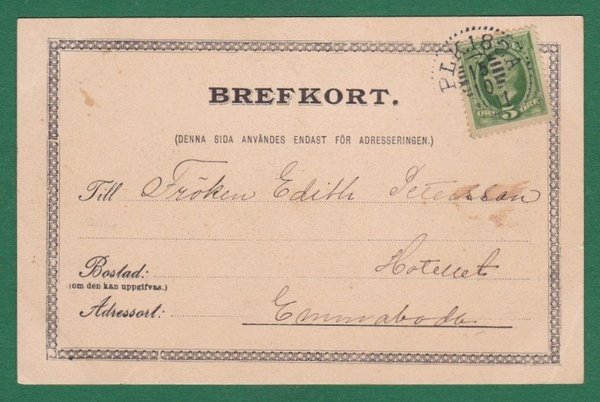 PLK 185 A
ÖRE 5 ÖRE
BREFKORT.
(DENNA SIDA ANVÄNDES ENDAST FÖR ADRESSERINGEN.)
Till Fröken Edith Petersson
Bostad: Hotellet
(om den kan uppgifvas.)
Adressort: Emmaboda